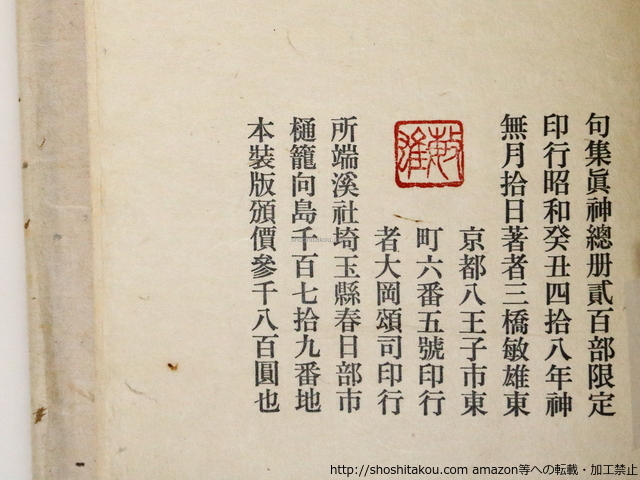 句集眞神總册貳百部限定
印行昭和癸丑四拾八年神
無月拾日著者三橋敏雄東
京都八王子市東
町六番五號印行
者大岡頌司印行
敏雄
所端溪社埼玉縣春日部市
樋籠向島千百七拾九番地
本裝版頒價參千八百圓也
http://shoshitakou.com amazon等への転載・加工禁止